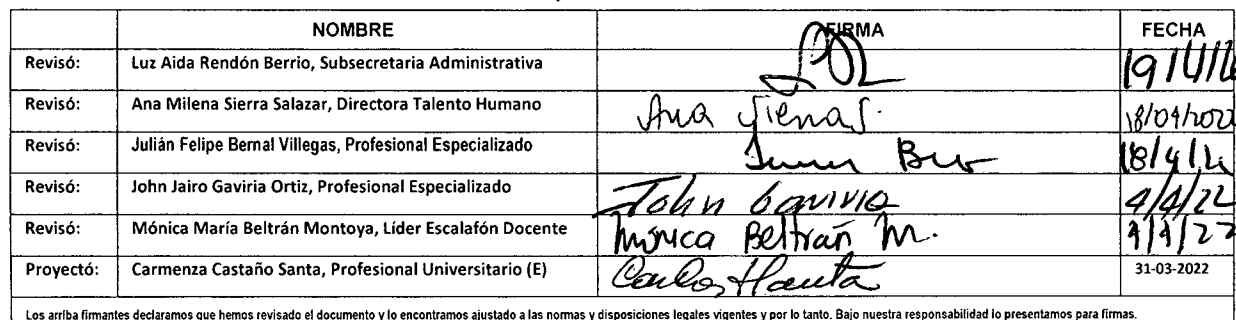 NOMBRE FIRMA FECHA
Revisó: Luz Aida Rendón Berrio, Subsecretaria Administrativa
Revisó: Ana Milena Sierra Salazar, Directora Talento Humano Ana Sierra S. 18/04/2022
Revisó: Julián Felipe Bernal Villegas, Profesional Especializado
Revisó: John Jairo Gaviria Ortiz, Profesional Especializado John Gaviria 4/4/22
Revisó: Mónica María Beltrán Montoya, Líder Escalafón Docente Mónica Beltrán M. 4/4/22
Proyectó: Carmenza Castaño Santa, Profesional Universitario (E) 31-03-2022
Los arriba firmantes declaramos que hemos revisado el documento y lo encontramos ajustado a las normas y disposiciones legales vigentes y por lo tanto. Bajo nuestra responsabilidad lo presentamos para firmas.